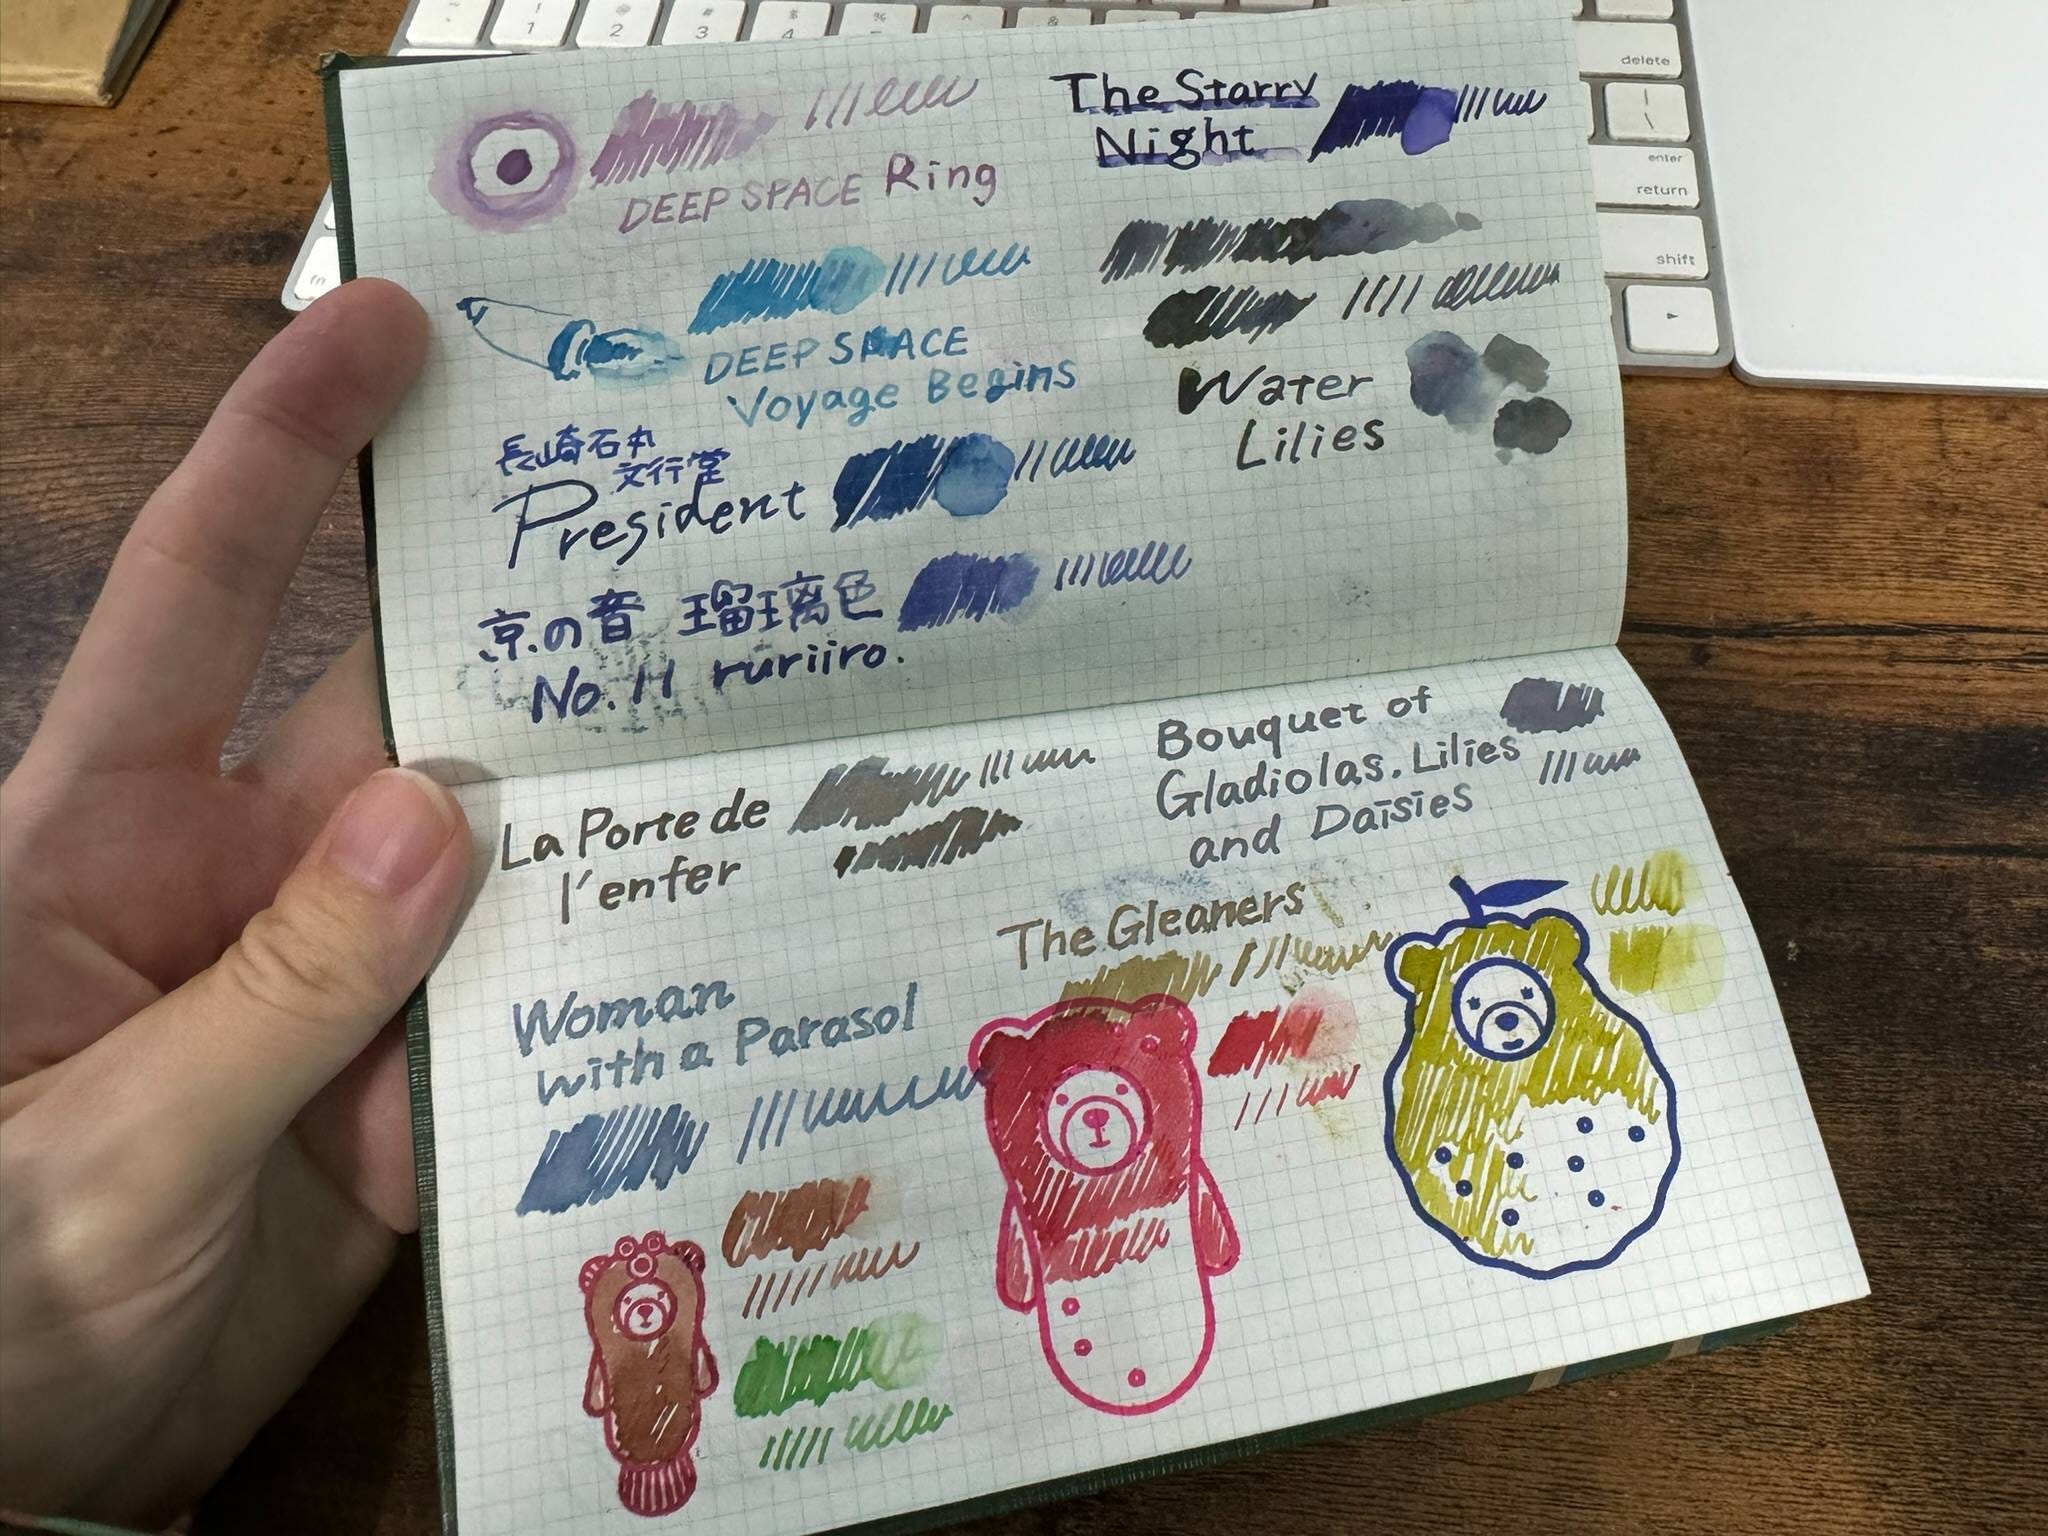 ~
1
!
2
@
3
#
4
$
%
^
&
delete
\
|
enter
return
shift
fn
DEEP SPACE Ring
The Starry
Night
DEEP SPACE
Voyage Begins
Water
Lilies
長崎石丸
文行堂
President
京の音 瑠璃色
No. 11 ruriiro.
La Porte de
l'enfer
Bouquet of
Gladiolas, Lilies
and Daisies
The Gleaners
Woman
with a Parasol